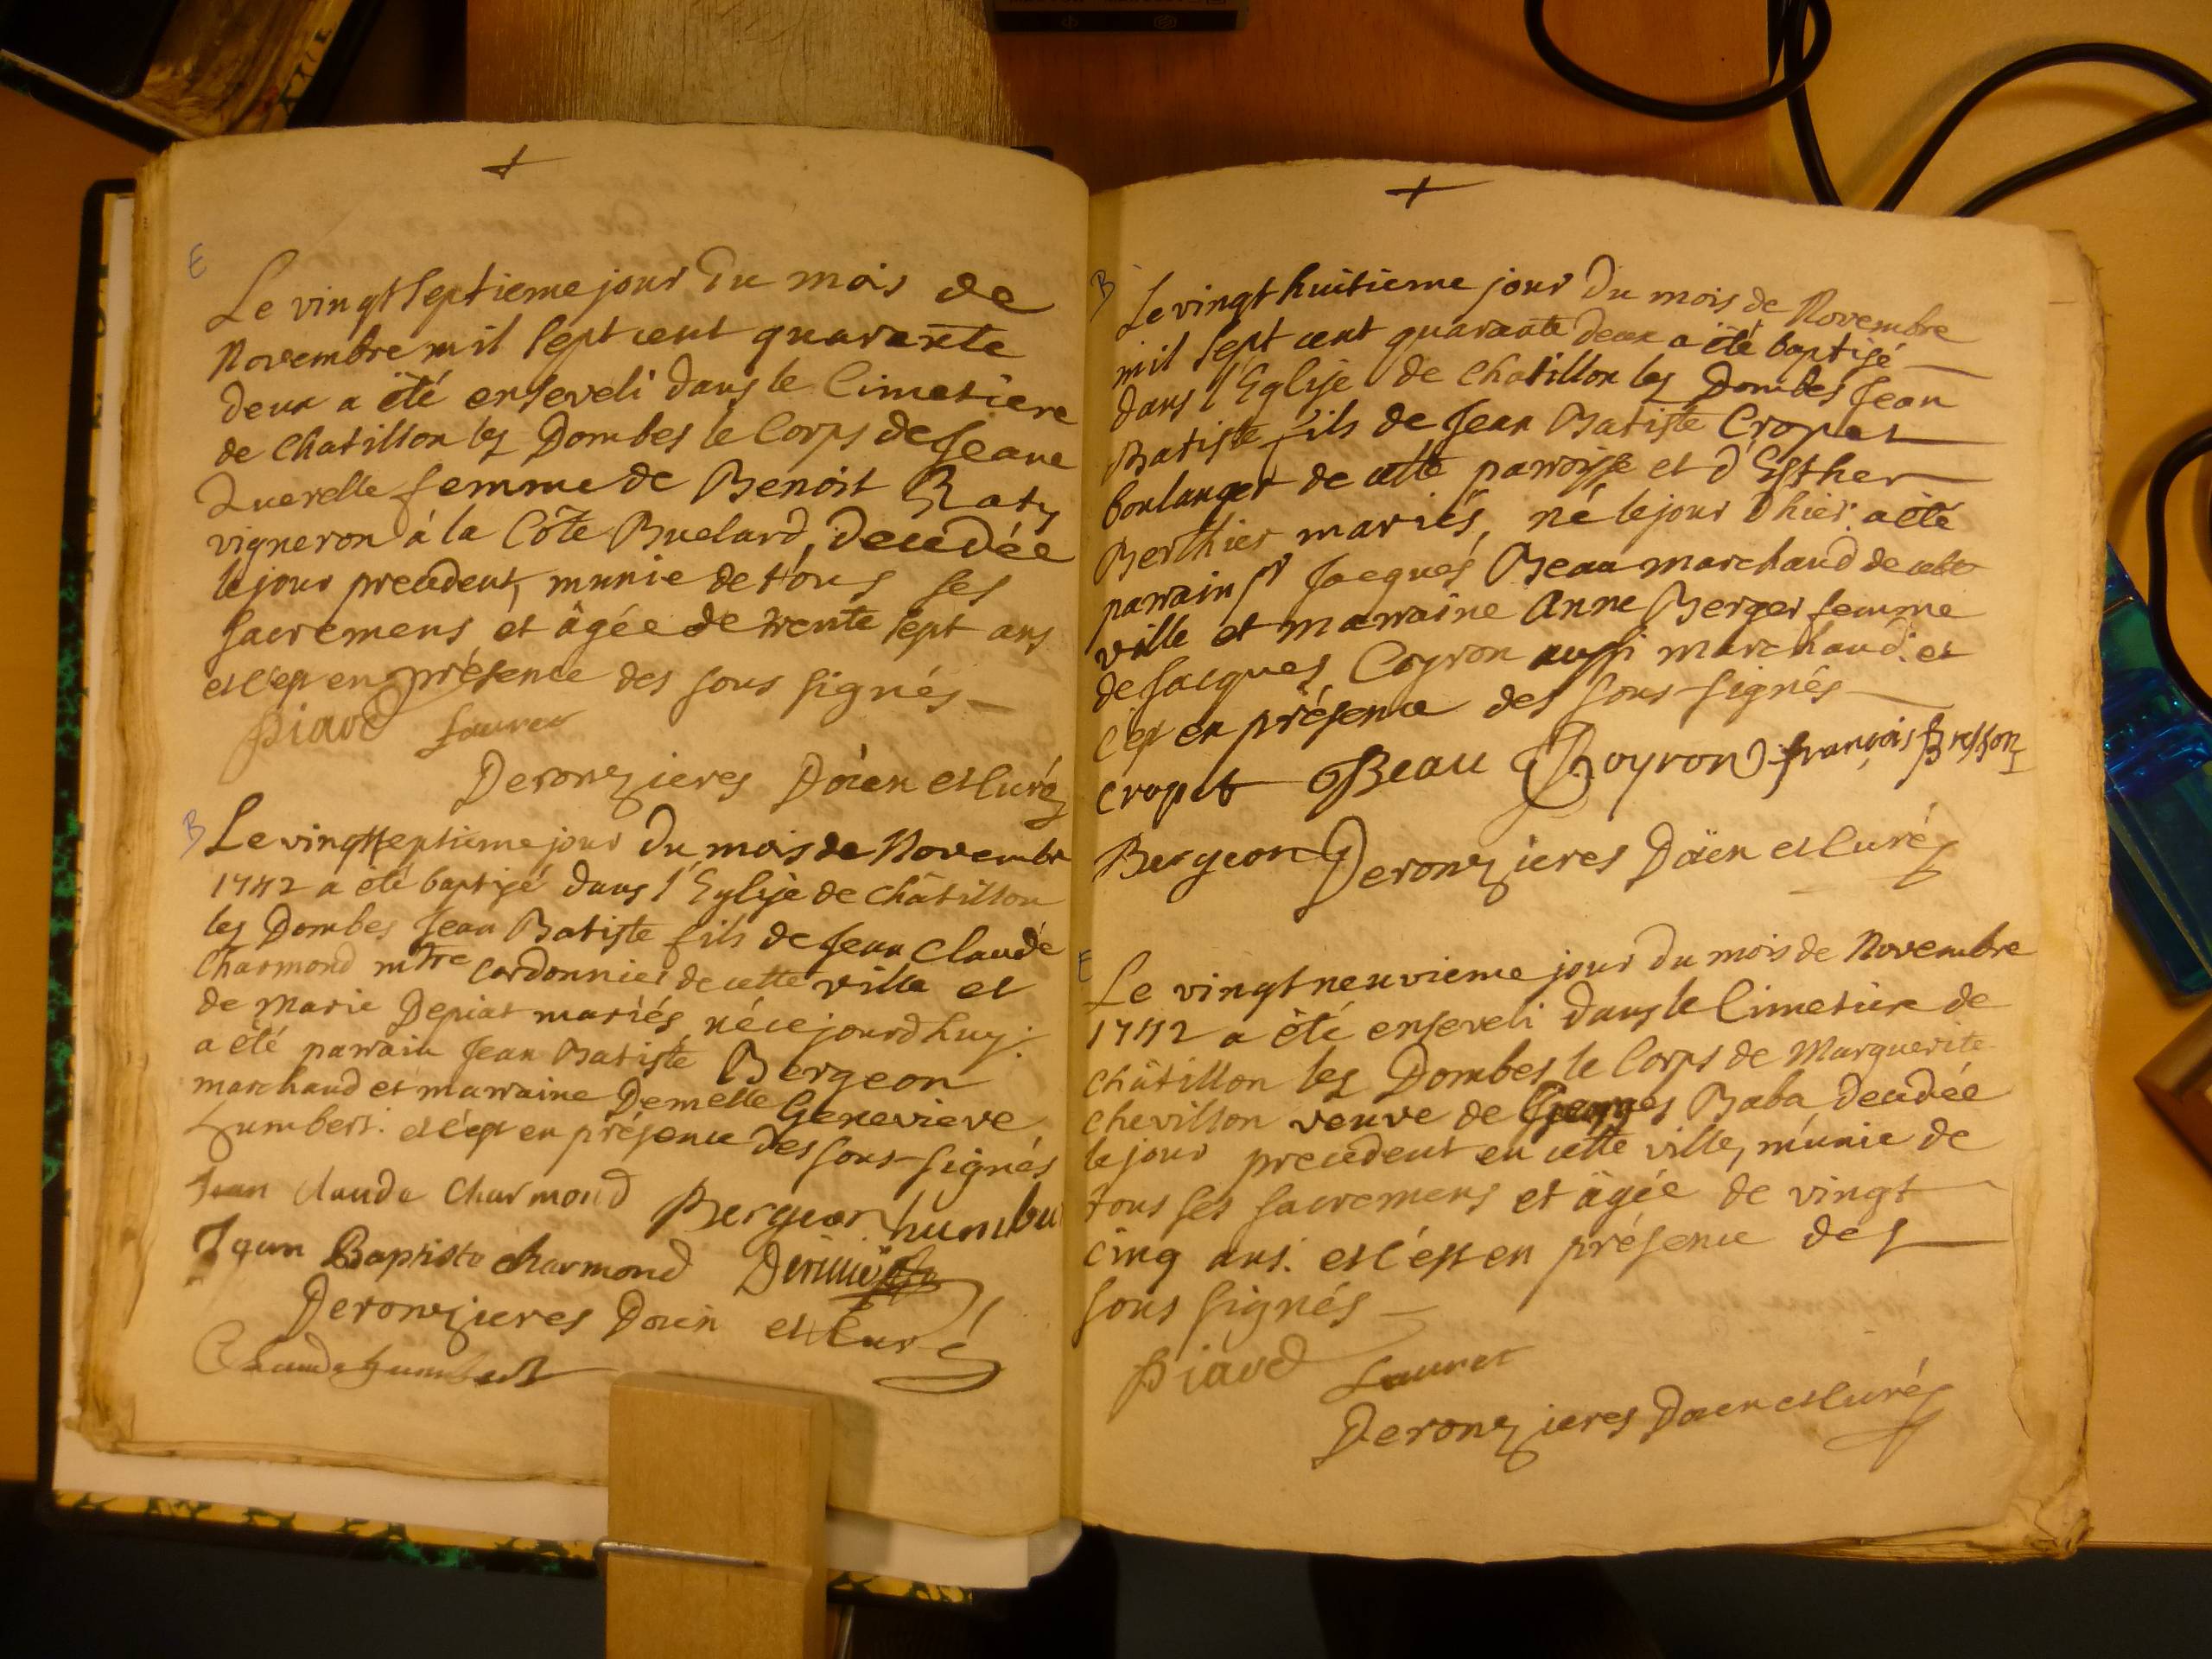 E
Le vingt septieme jour du mois de
Novembre mil sept cent quarante
deux a êté enseveli dans le Cimetiere
de Chatillon les Dombes le Corps de Jeane
Querelle femme de Benoit Raty
vigneron à la Côte Buelard, decedée
le jour precedent, munie de tous ses
sacremens et âgée de trente sept ans
et c'est en présence des sous signés
Piard Lauret
Deronzieres Doïen et Curé
B
Le vingt septieme jour du mois de Novembre
1742 a êté baptisé dans l'Eglise de Châtillon
les Dombes Jean Batiste fils de Jean Claude
Charmond mtre cordonnier de cette ville et
de Marie Depiat mariés, né ce jourdhuy.
a êté parrain Jean Batiste Bergeon
marchand et marraine Demelle Genevieve
humbert. et c'est en présence des sous-signés
Jean claude Charmond Bergeon humber
Jean Baptiste charmond
Deronzieres Doïen et Curé
Claude humbert
B
Le vingt huitieme jour du mois de Novembre
mil sept cent quarante deux a êté baptisé
dans l'Eglise de Chatillon les Dombes Jean
Batiste fils de Jean Batiste Cropet
boulanger de cette parroisse et d'Esther
Berthier mariés, né le jour d'hier. a êté
parrain sr Jacques Beau marchand de cette
ville et marraine Anne Berger femme
de Jacques Coyron aussi marchand. et
c'est en présence des sous-signés
cropet Beau Coyron françois Bresson
Bergeon Deronzieres Doïen et Curé
E
Le vingt neuvieme jour du mois de Novembre
1742 a êté enseveli dans le Cimetiere de
Châtillon les Dombes le Corps de Marguerite
Chevillon veuve de Georges Baba decedée
le jour precedent en cette ville, munie de
tous ses sacremens et âgée de vingt
cinq ans. et c'est en présence des
sous signés
Piard Lauret
Deronzieres Doïen et Curé